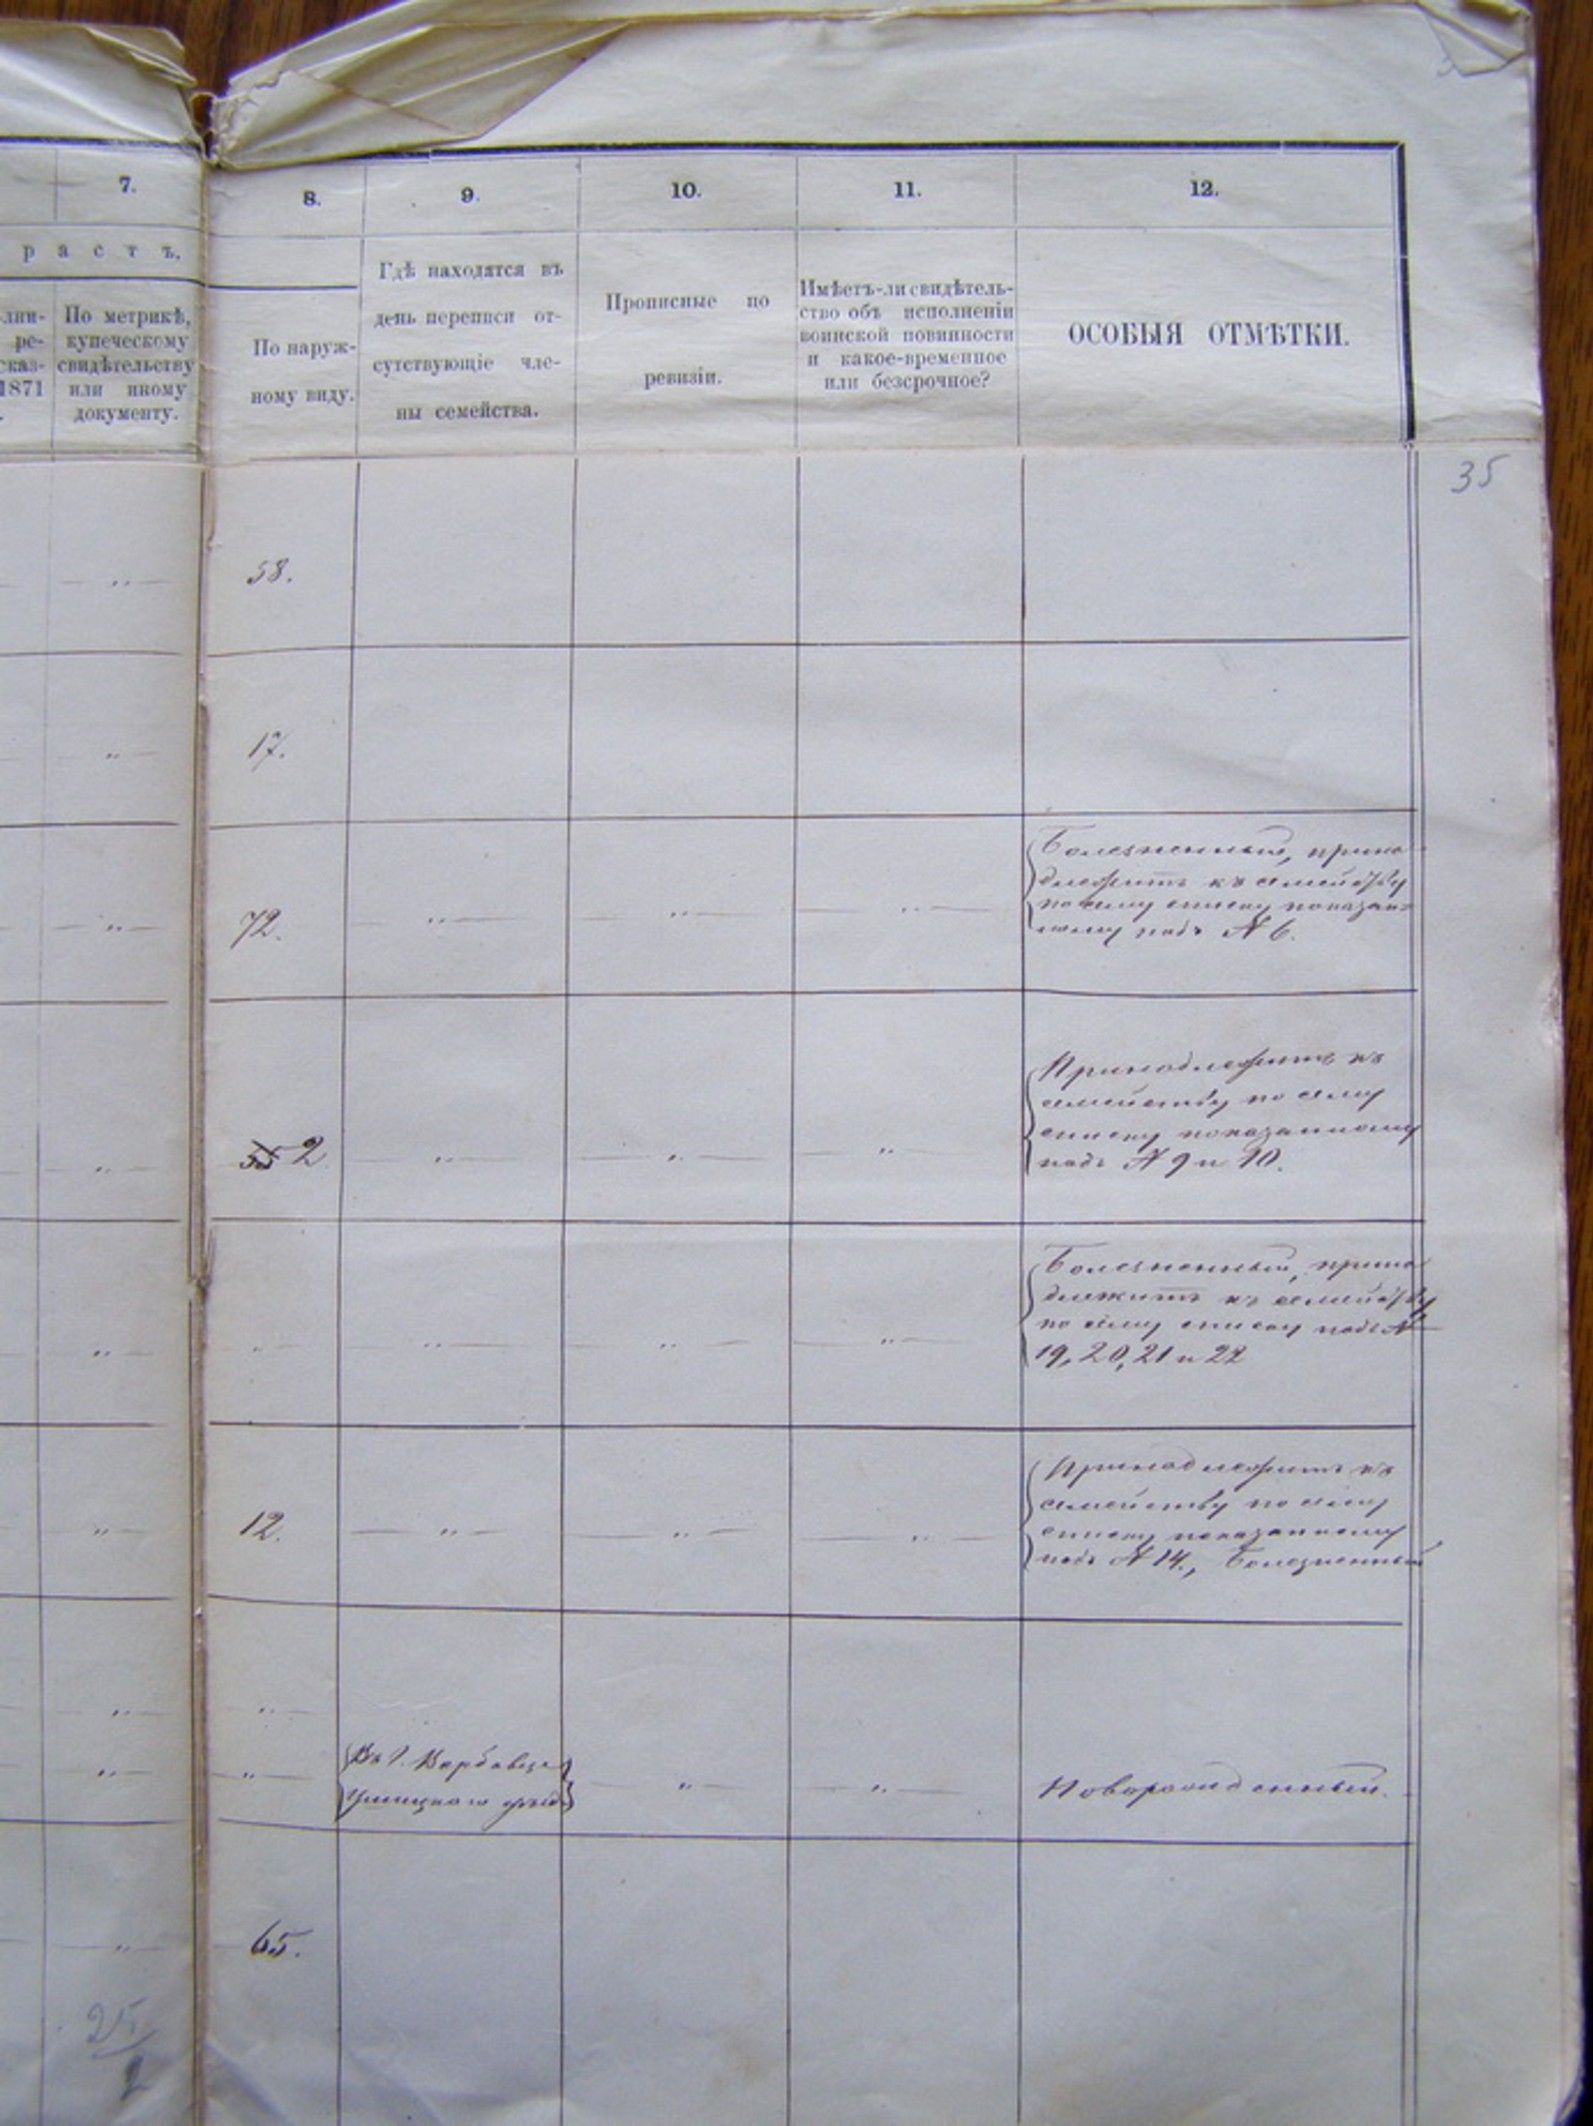 7.
8.
9.
10.
11.
12.
растъ,
-лни-
ре-
сказ-
1871
По метрикѣ,
купеческому
свидѣтельству
или иному
документу.
По наруж-
ному виду.
Гдѣ находятся въ
день переписи от-
сутствующіе чле-
ны семейства.
Прописные по
ревизіи.
Имѣетъ-ли свидѣтель-
ство объ исполненіи
воинской повинности
и какое-временное
или безсрочное?
ОСОБЫЯ ОТМѢТКИ.
35
58.
17.
72.
Болезненный, прина-
длежитъ къ семейству
по сему списку показан-
ному подъ № 6.
55 2
Принадлежитъ къ
семейству по сему
списку показанному
подъ № 9 и 10.
Болезненный, прина
длежитъ къ семейству
по сему списку подъ №
19, 20, 21 и 22
12.
Принадлежитъ къ
семейству по сему
списку показанному
подъ № 14., Болезненный
Въ
уѣзд
Новорожденный.
65.
25
2